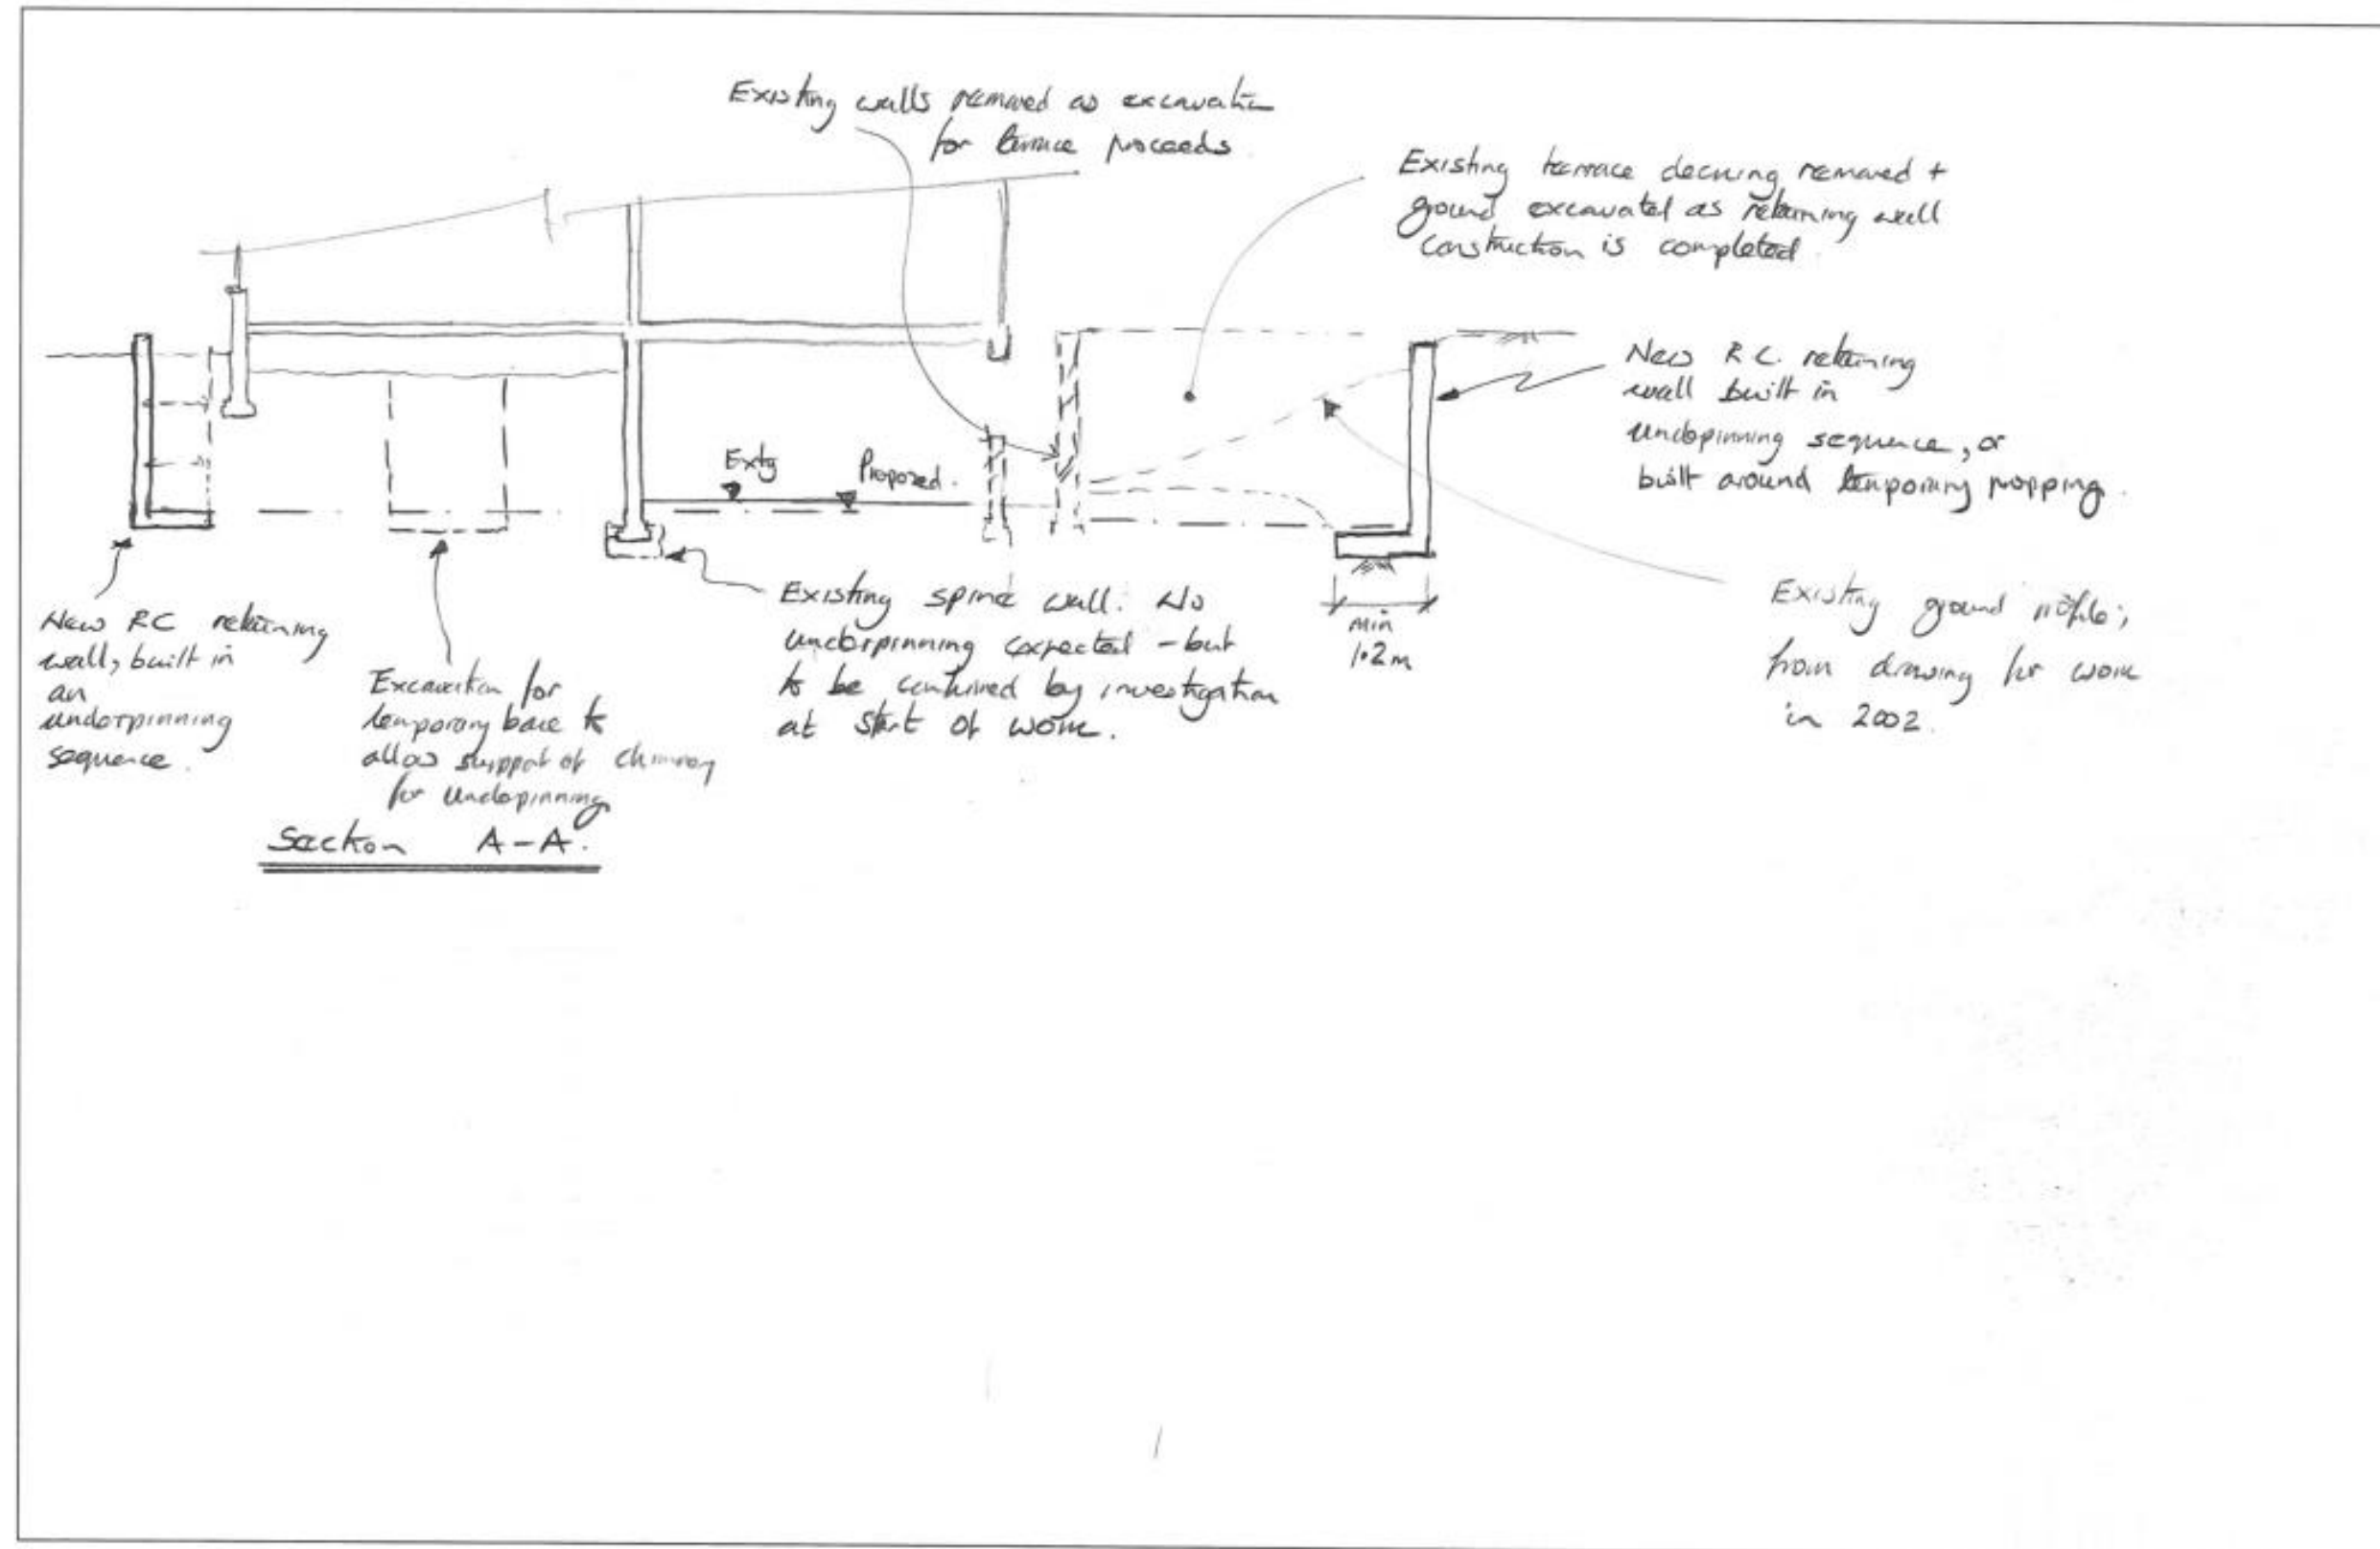 Existing walls removed as excavation
for terrace proceeds
Existing terrace decking removed +
ground excavated as retaining wall
construction is completed.
New R C. retaining
wall built in
underpinning sequence, or
built around temporary propping.
Extg
Proposed.
Existing ground profile;
from drawing for work
in 2002.
Min
1.2m
Existing spine wall. No
underpinning expected - but
to be confirmed by investigation
at start of work.
New RC retaining
wall, built in
an
underpinning
sequence.
Excavation for
temporary base to
allow support of chimney
for underpinning
Section A-A.